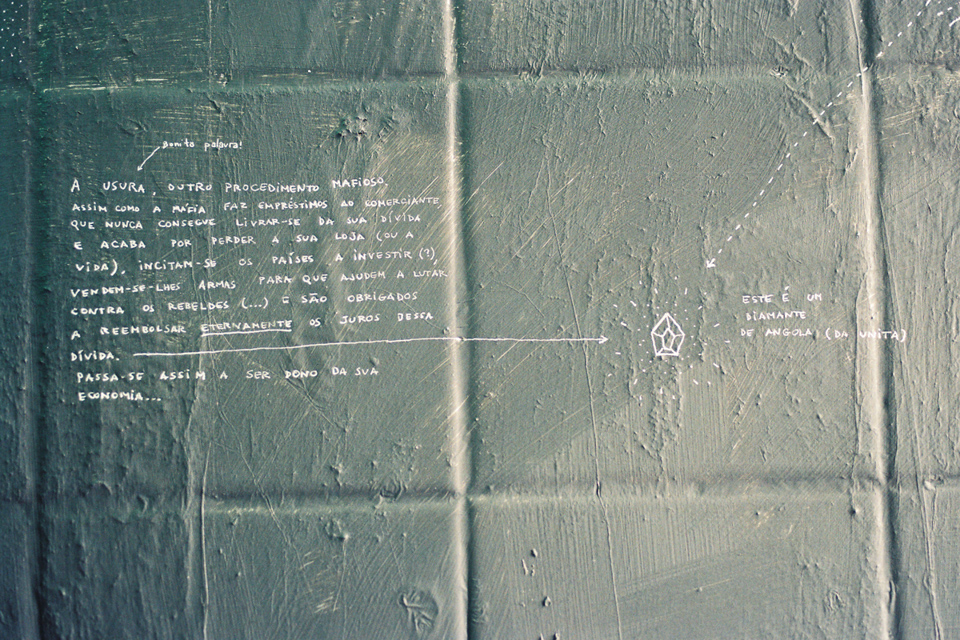 Bonita palavra!
A USURA, OUTRO PROCEDIMENTO MAFIOSO.
ASSIM COMO A MÁFIA FAZ EMPRÉSTIMOS AO COMERCIANTE
QUE NUNCA CONSEGUE LIVRAR-SE DA SUA DÍVIDA
E ACABA POR PERDER A SUA LOJA (OU A
VIDA), INCITAM-SE OS PAÍSES A INVESTIR (?),
VENDEM-SE-LHES ARMAS PARA QUE AJUDEM A LUTAR
CONTRA OS REBELDES (...) E SÃO OBRIGADOS
A REEMBOLSAR ETERNAMENTE OS JUROS DESSA
DÍVIDA.
PASSA-SE ASSIM A SER DONO DA SUA
ECONOMIA...
ESTE É UM
DIAMANTE
DE ANGOLA (DA UNITA)